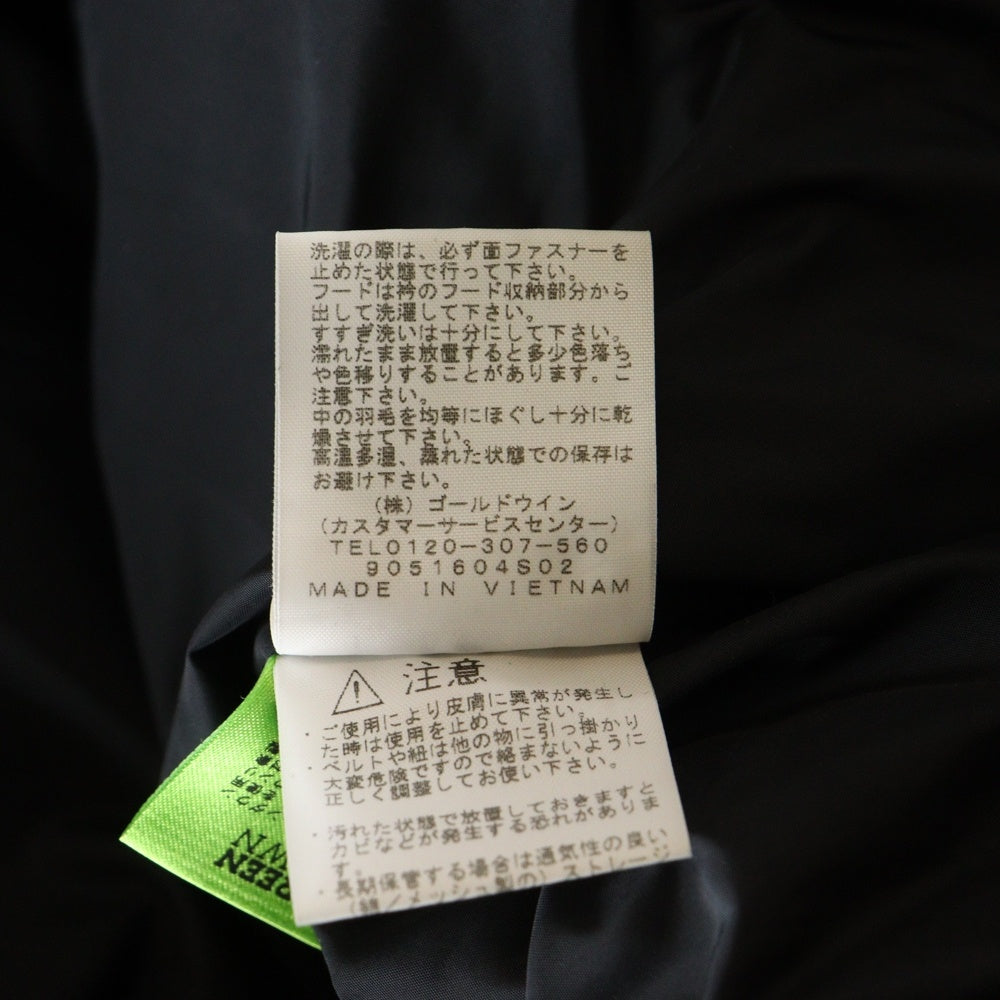 洗濯の際は、必ず面ファスナーを
止めた状態で行って下さい。
フードは衿のフード収納部分から
出して洗濯して下さい。
すすぎ洗いは十分にして下さい。
濡れたまま放置すると多少色落ち
や色移りすることがあります。ご
注意下さい。
中の羽毛を均等にほぐし十分に乾
燥させて下さい。
高温多湿、蒸れた状態での保存は
お避け下さい。
(株)ゴールドウイン
(カスタマーサービスセンター)
TEL0120-307-560
9051604S02
MADE IN VIETNAM
注意
・ご使用により皮膚に異常が発生し
た時は使用を止めて下さい。
・ベルトや紐は他の物に引っ掛かり
大変危険ですので絡まないように
正しく調整してお使い下さい。
・汚れた状態で放置しておきますと
カビなどが発生する恐れがありま
す。
・長期保管する場合は通気性の良い
(綿/メッシュ製の)ストレージ
REEN
WN